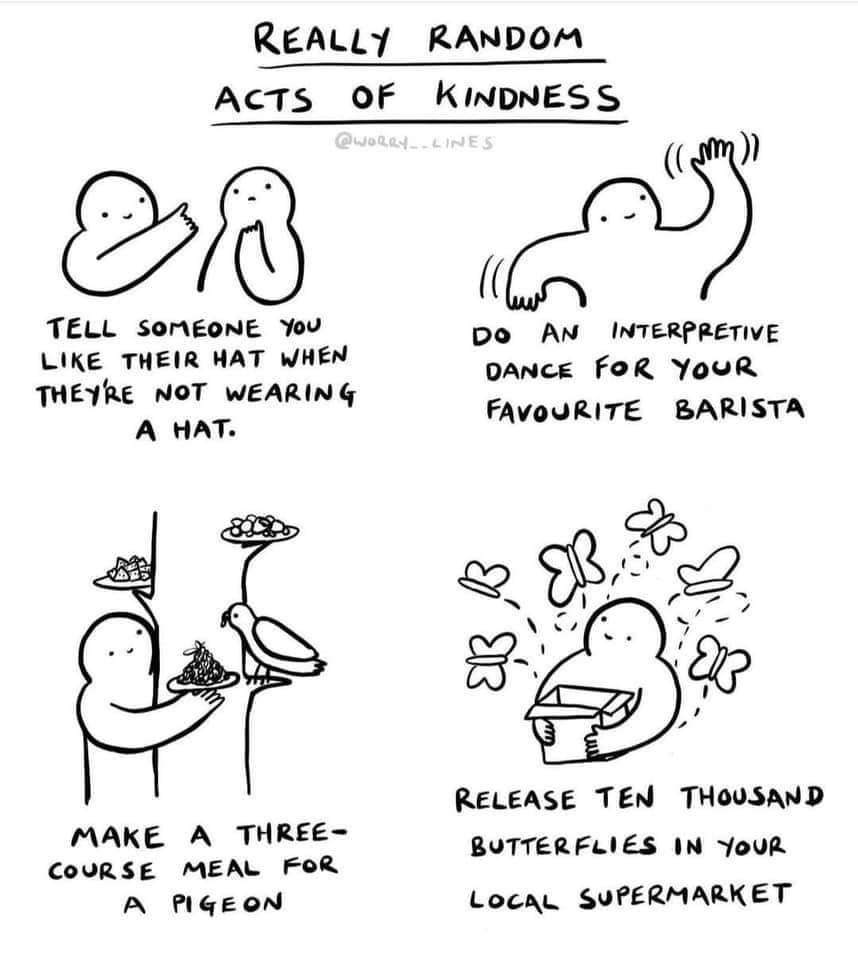 REALLY RANDOM
ACTS OF KINDNESS
@WORRY__LINES
TELL SOMEONE YOU
LIKE THEIR HAT WHEN
THEY'RE NOT WEARING
A HAT.
DO AN INTERPRETIVE
DANCE FOR YOUR
FAVOURITE BARISTA
MAKE A THREE-
COURSE MEAL FOR
A PIGEON
RELEASE TEN THOUSAND
BUTTERFLIES IN YOUR
LOCAL SUPERMARKET